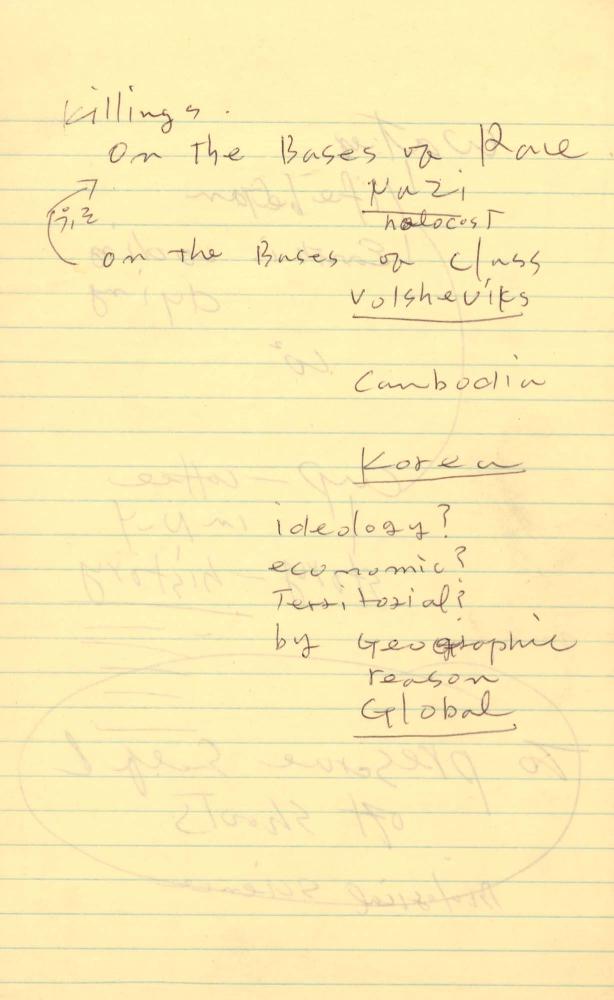 Killings.
On The Bases of Race
Nazi
holocost
on the Bases of class
Volsheviks
Cambodia
Korea
ideology?
economic?
Territorial?
by Geographic
reason
Global